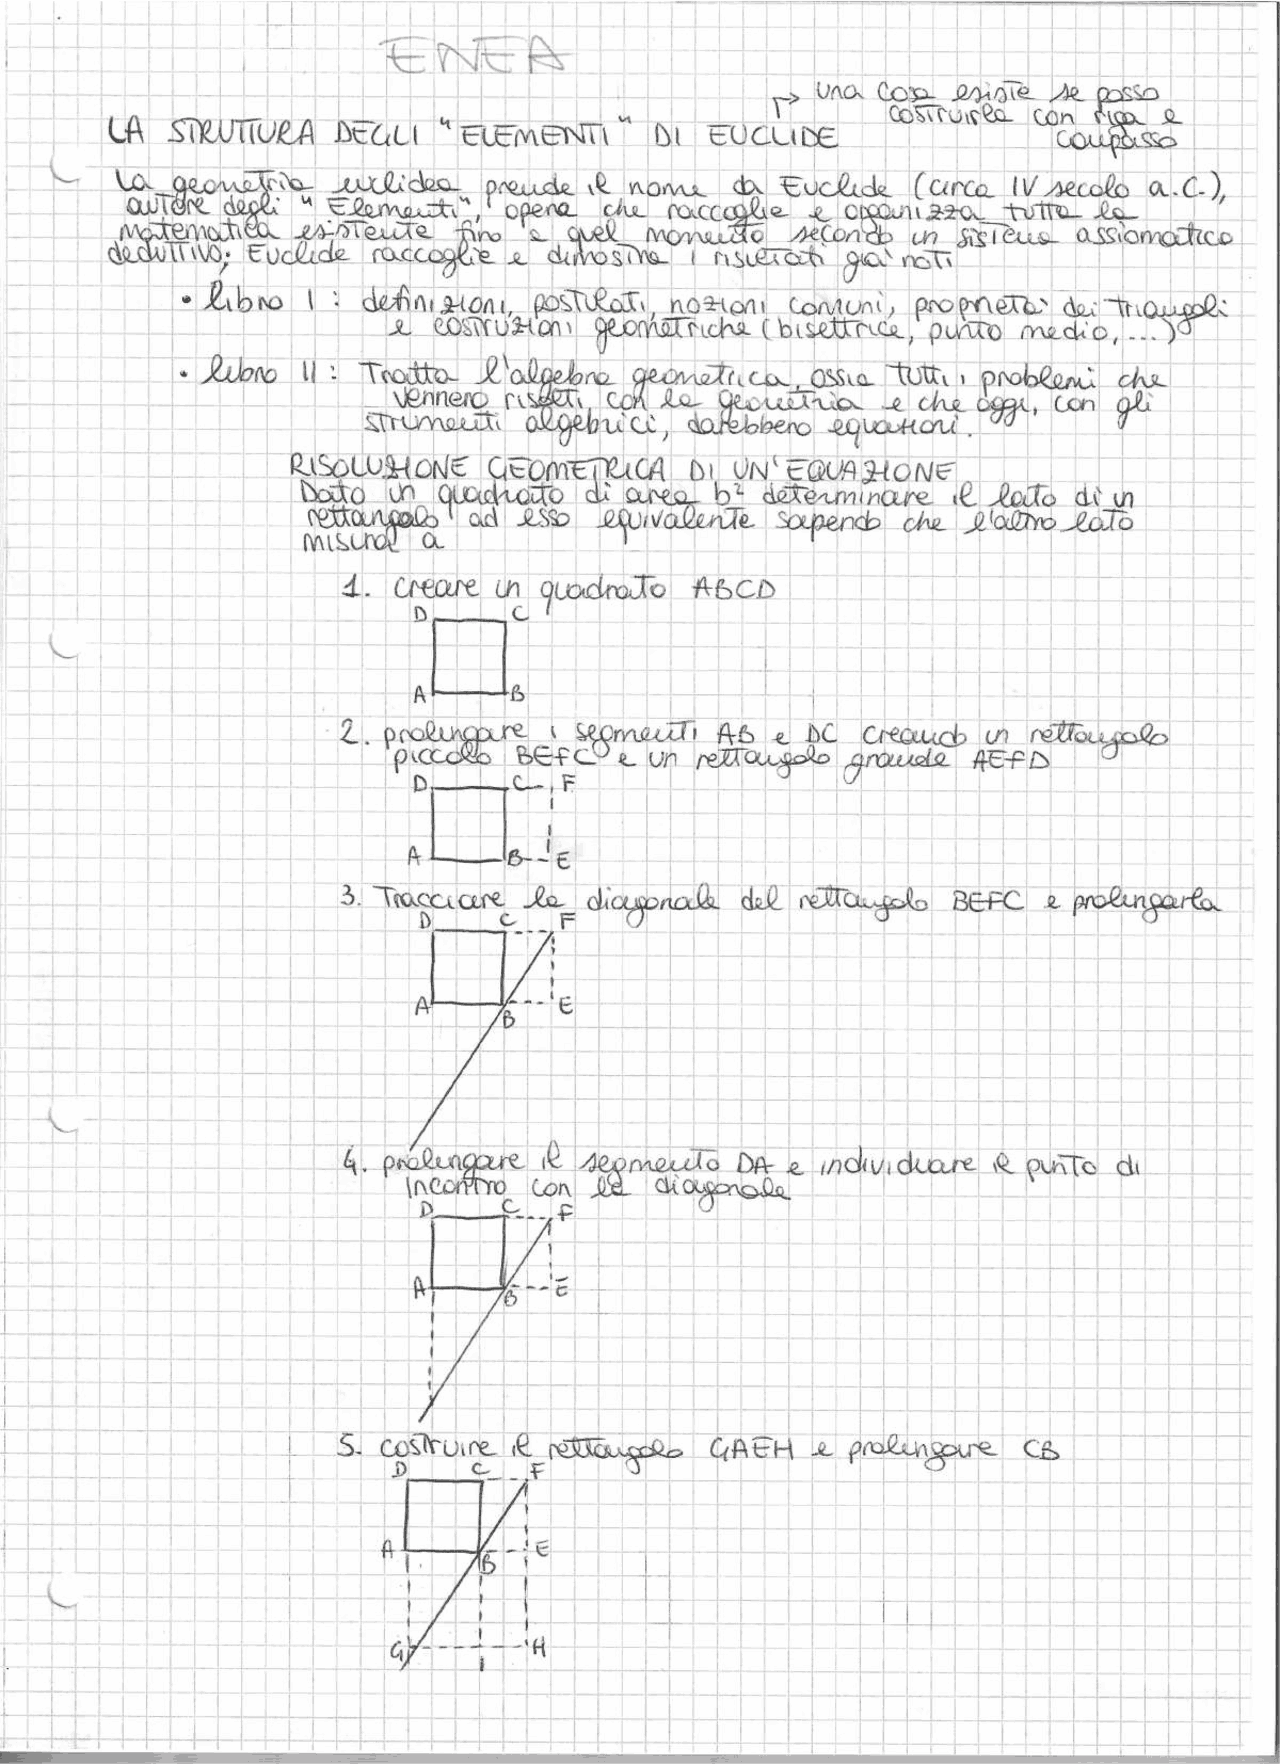 ENEA
→ una cosa esiste se posso
costruirla con riga e
compasso
LA STRUTTURA DEGLI "ELEMENTI" DI EUCLIDE
La geometria euclidea prende il nome da Euclide (circa IV secolo a.C.),
autore degli "Elementi", opera che raccoglie e organizza tutta la
matematica esistente fino a quel momento secondo un sistema assiomatico
deduttivo; Euclide raccoglie e dimostra i risultati già noti
• libro I: definizioni, postulati, nozioni comuni, proprietà dei triangoli
e costruzioni geometriche (bisettrice, punto medio, ...)
• libro II: Tratta l'algebra geometrica, ossia tutti i problemi che
vennero risolti con la geometria e che oggi, con gli
strumenti algebrici, darebbero equazioni.
RISOLUZIONE GEOMETRICA DI UN'EQUAZIONE
Dato un quadrato di area b² determinare il lato di un
rettangolo ad esso equivalente sapendo che l'altro lato
misura a
1. creare un quadrato ABCD
D C
A B
2. prolungare i segmenti AB e DC creando un rettangolo
piccolo BEFC e un rettangolo grande AEFD
D C F
A B E
3. Tracciare la diagonale del rettangolo BEFC e prolungarla
D C F
A B E
4. prolungare il segmento DA e individuare il punto di
incontro con la diagonale
D C F
A B E
5. costruire il rettangolo GAEH e prolungare CB
D C F
A B E
G I H